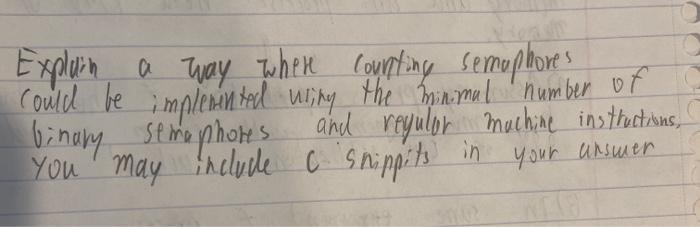 Explain a way where counting semaphores
could be implemented using the minimal number of
binary semaphores and regular machine instructions,
you may include C snippits in your answer